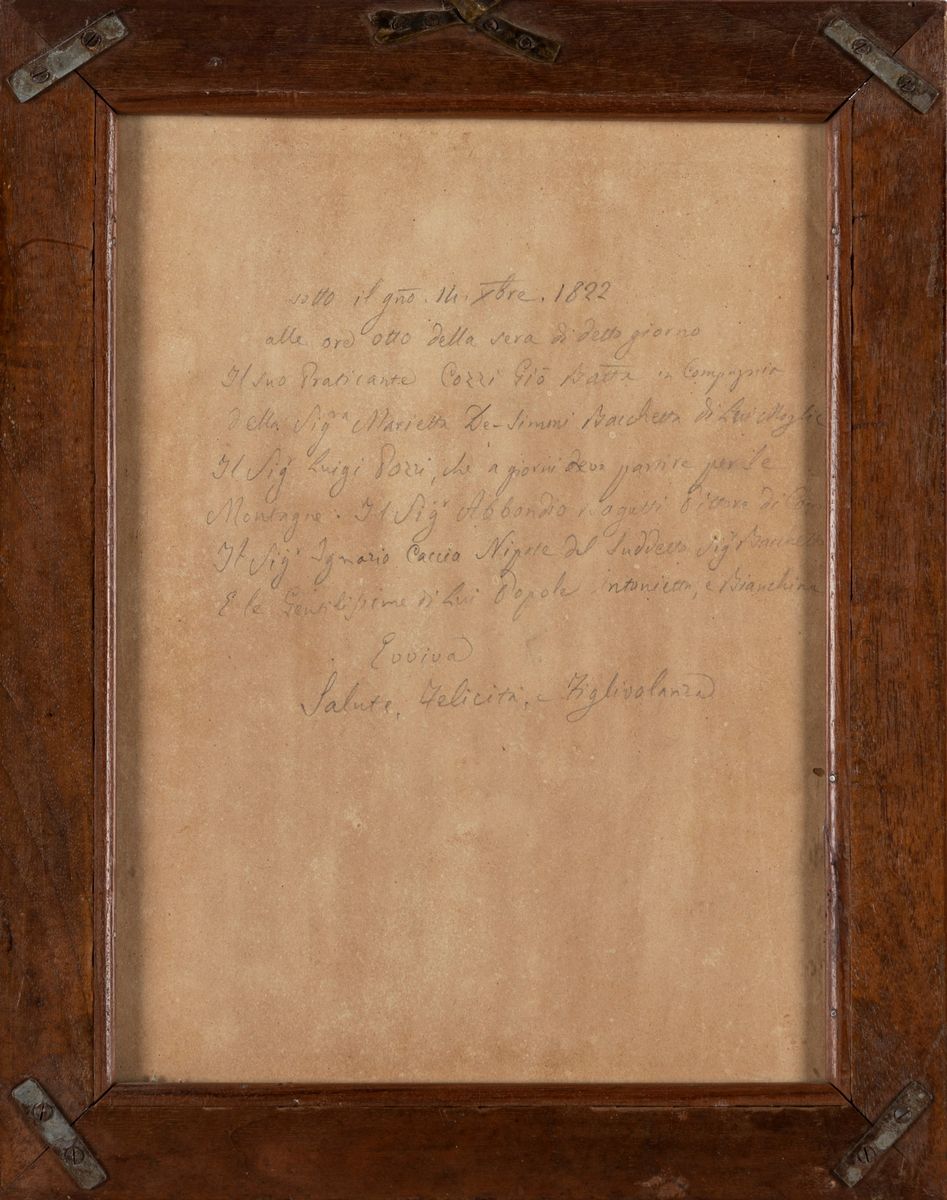 sotto il gño. 14. Xbre. 1822
alle ore otto della sera di detto giorno
Il suo Praticante Cozzi Giō Batta in Compagnia
della Sigra Marietta De-Simoni Bacchetta di Lui Moglie
Il Sigr Luigi Pozzi, che a giorni deve partire per le
Montagne. Il Sigr Abbondio Pittore di
Il Sigr Ignazio Caccia Nipote del Suddetto Sigr Bacchetta
E le Gentilissime di Lui Popole Antonietta, e Bianchina
Evviva
Salute, Felicità, e Figlivolanza